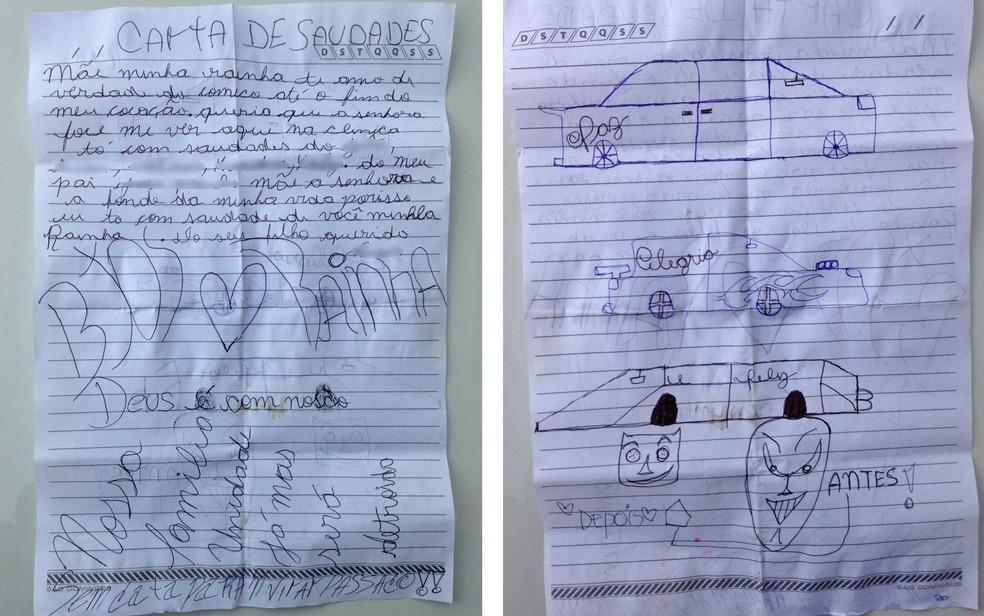 CARTA DE SAUDADES
D S T Q Q S S
Mãe minha rainha te amo de
verdade do começo até o fim do
meu coração. queria que a senhora
fose me ver aqui na clinica
tô com saudades do
do meu
pai
mãe a senhora e
a fonde da minha vida porisso
eu to com saudade de você minha
Rainha
Do seu filho querido
RAINHA
Deus é com nosco
Nossa
familia
Unidade
Já mas
será
detroido
SÃO DOMINGOS
D S T Q Q S S
/ /
Paz
Alegria
e feliz
ANTES!
DEPOIS
SÃO DOMINGOS